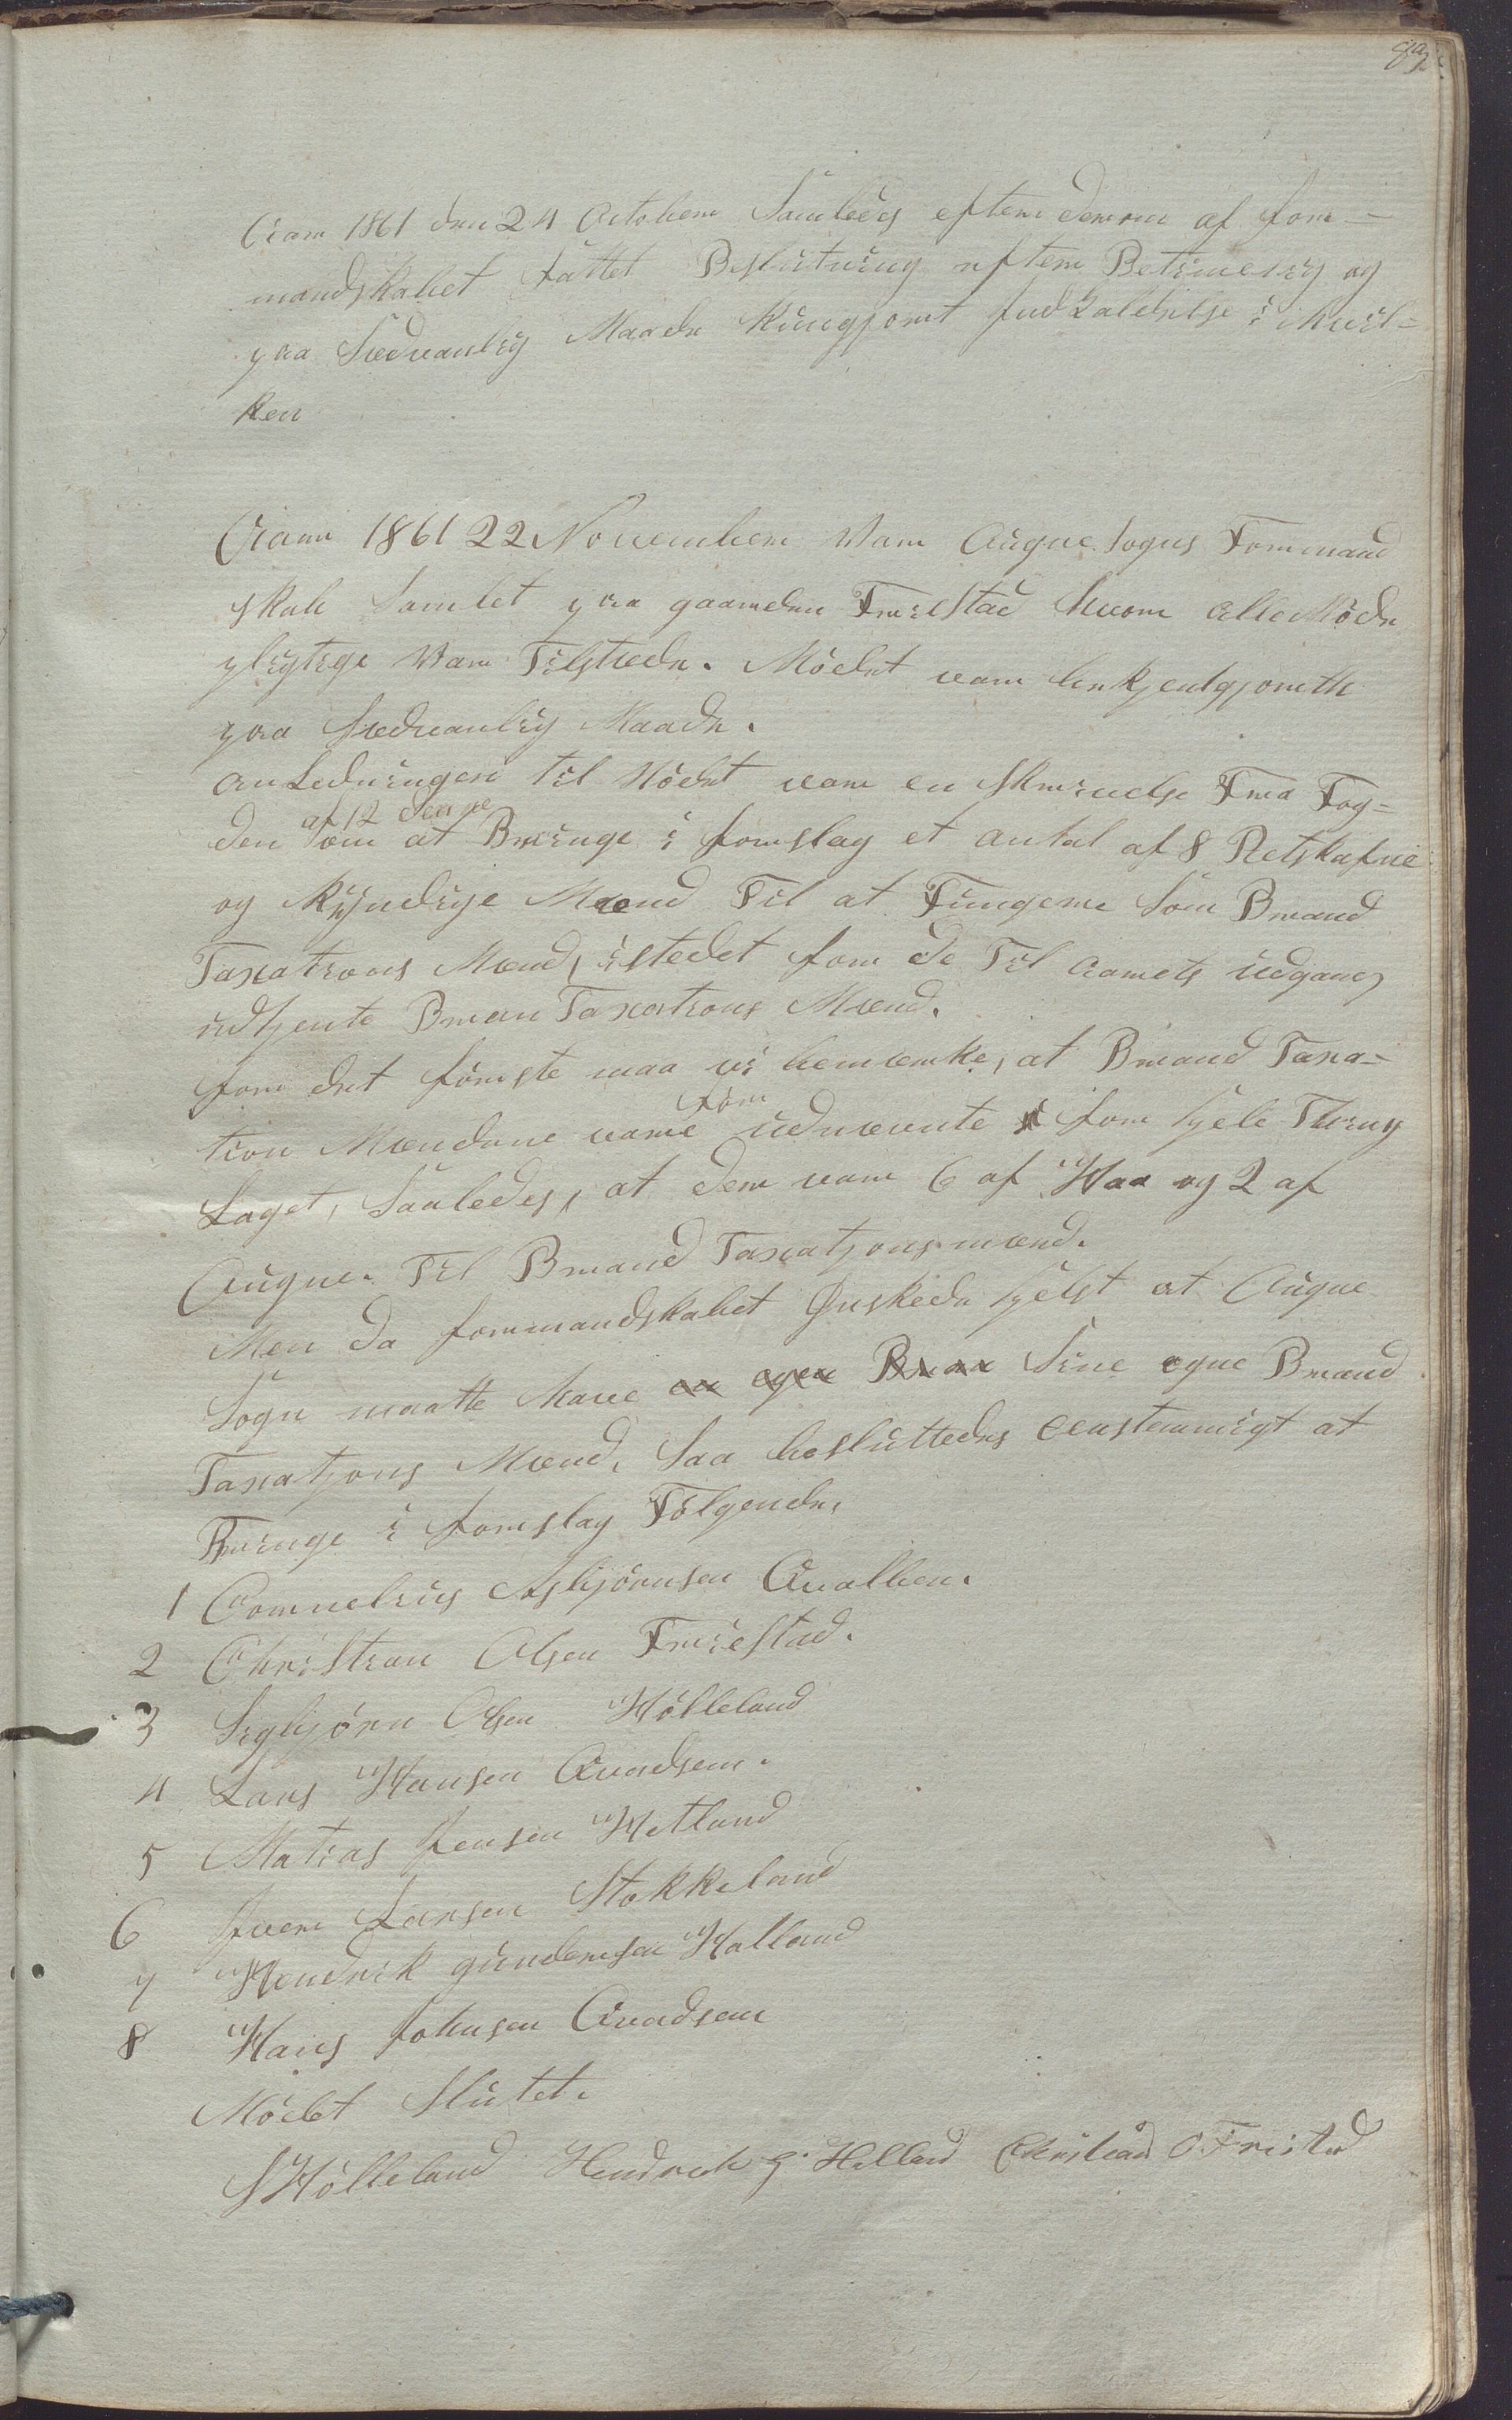 89
Aar 1861 den 24 October Samledes efter derom af for-
mandskabet Fattet Beslutning efter Betimelig og
paa Sædvanlig Maade Kungjort Indkaldelse i hvil-
ken
Aar 1861 22 November Var Augne Sogns Formand
skab Samlet paa gaarden Friestad hvor alle Møde
pligtige Var Tilstæde. Mødet var bekjentgjorth
paa Sædvanlig Maade.
anledningen til Mødet var en Skrivelse Fra Fog-
af 12 denne
den om at Bringe i forslag et antal af 8 Retskafne
og Kyndige Mænd Til at Fungere Som Brand
Taxations Mænd, istedet for de Til aarets udgang
udtjente Bran Taxations Mænd.
for det første maa vi bemærke, at Brand Taxa-
før
tion Mændene vare udnævnte for hele Thing
Laget, Saaledes, at der var 6 af Haa og 2 af
Augne. Til Brand Taxatjonsmænd.
Men da formandskabet Ønskede helst at Augne
Sogn maatte have en egen Bran Sine egne Brand
Taxatjons Mænd. Saa besluttedes eenstemmigt at
Bringe i forslag Følgende.
1 Cornelius Asbjørnsen Qualben.
2 Christian Olsen Friestad.
3 Sigbjørn Olsen Hølleland
4 Lars Hansen Quadsem.
5 Matias Jensen Hetland
6 Iver Larsen Stokkeland
7 Hendrik gundersen Halland
8 Hans Johnsen Quadsem
Mødet Slutet.
S Hølleland Hendrik G. Helland Christian O Fristad